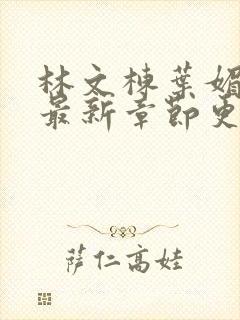 林文栋葉媚
最新章節更
萨仁高娃